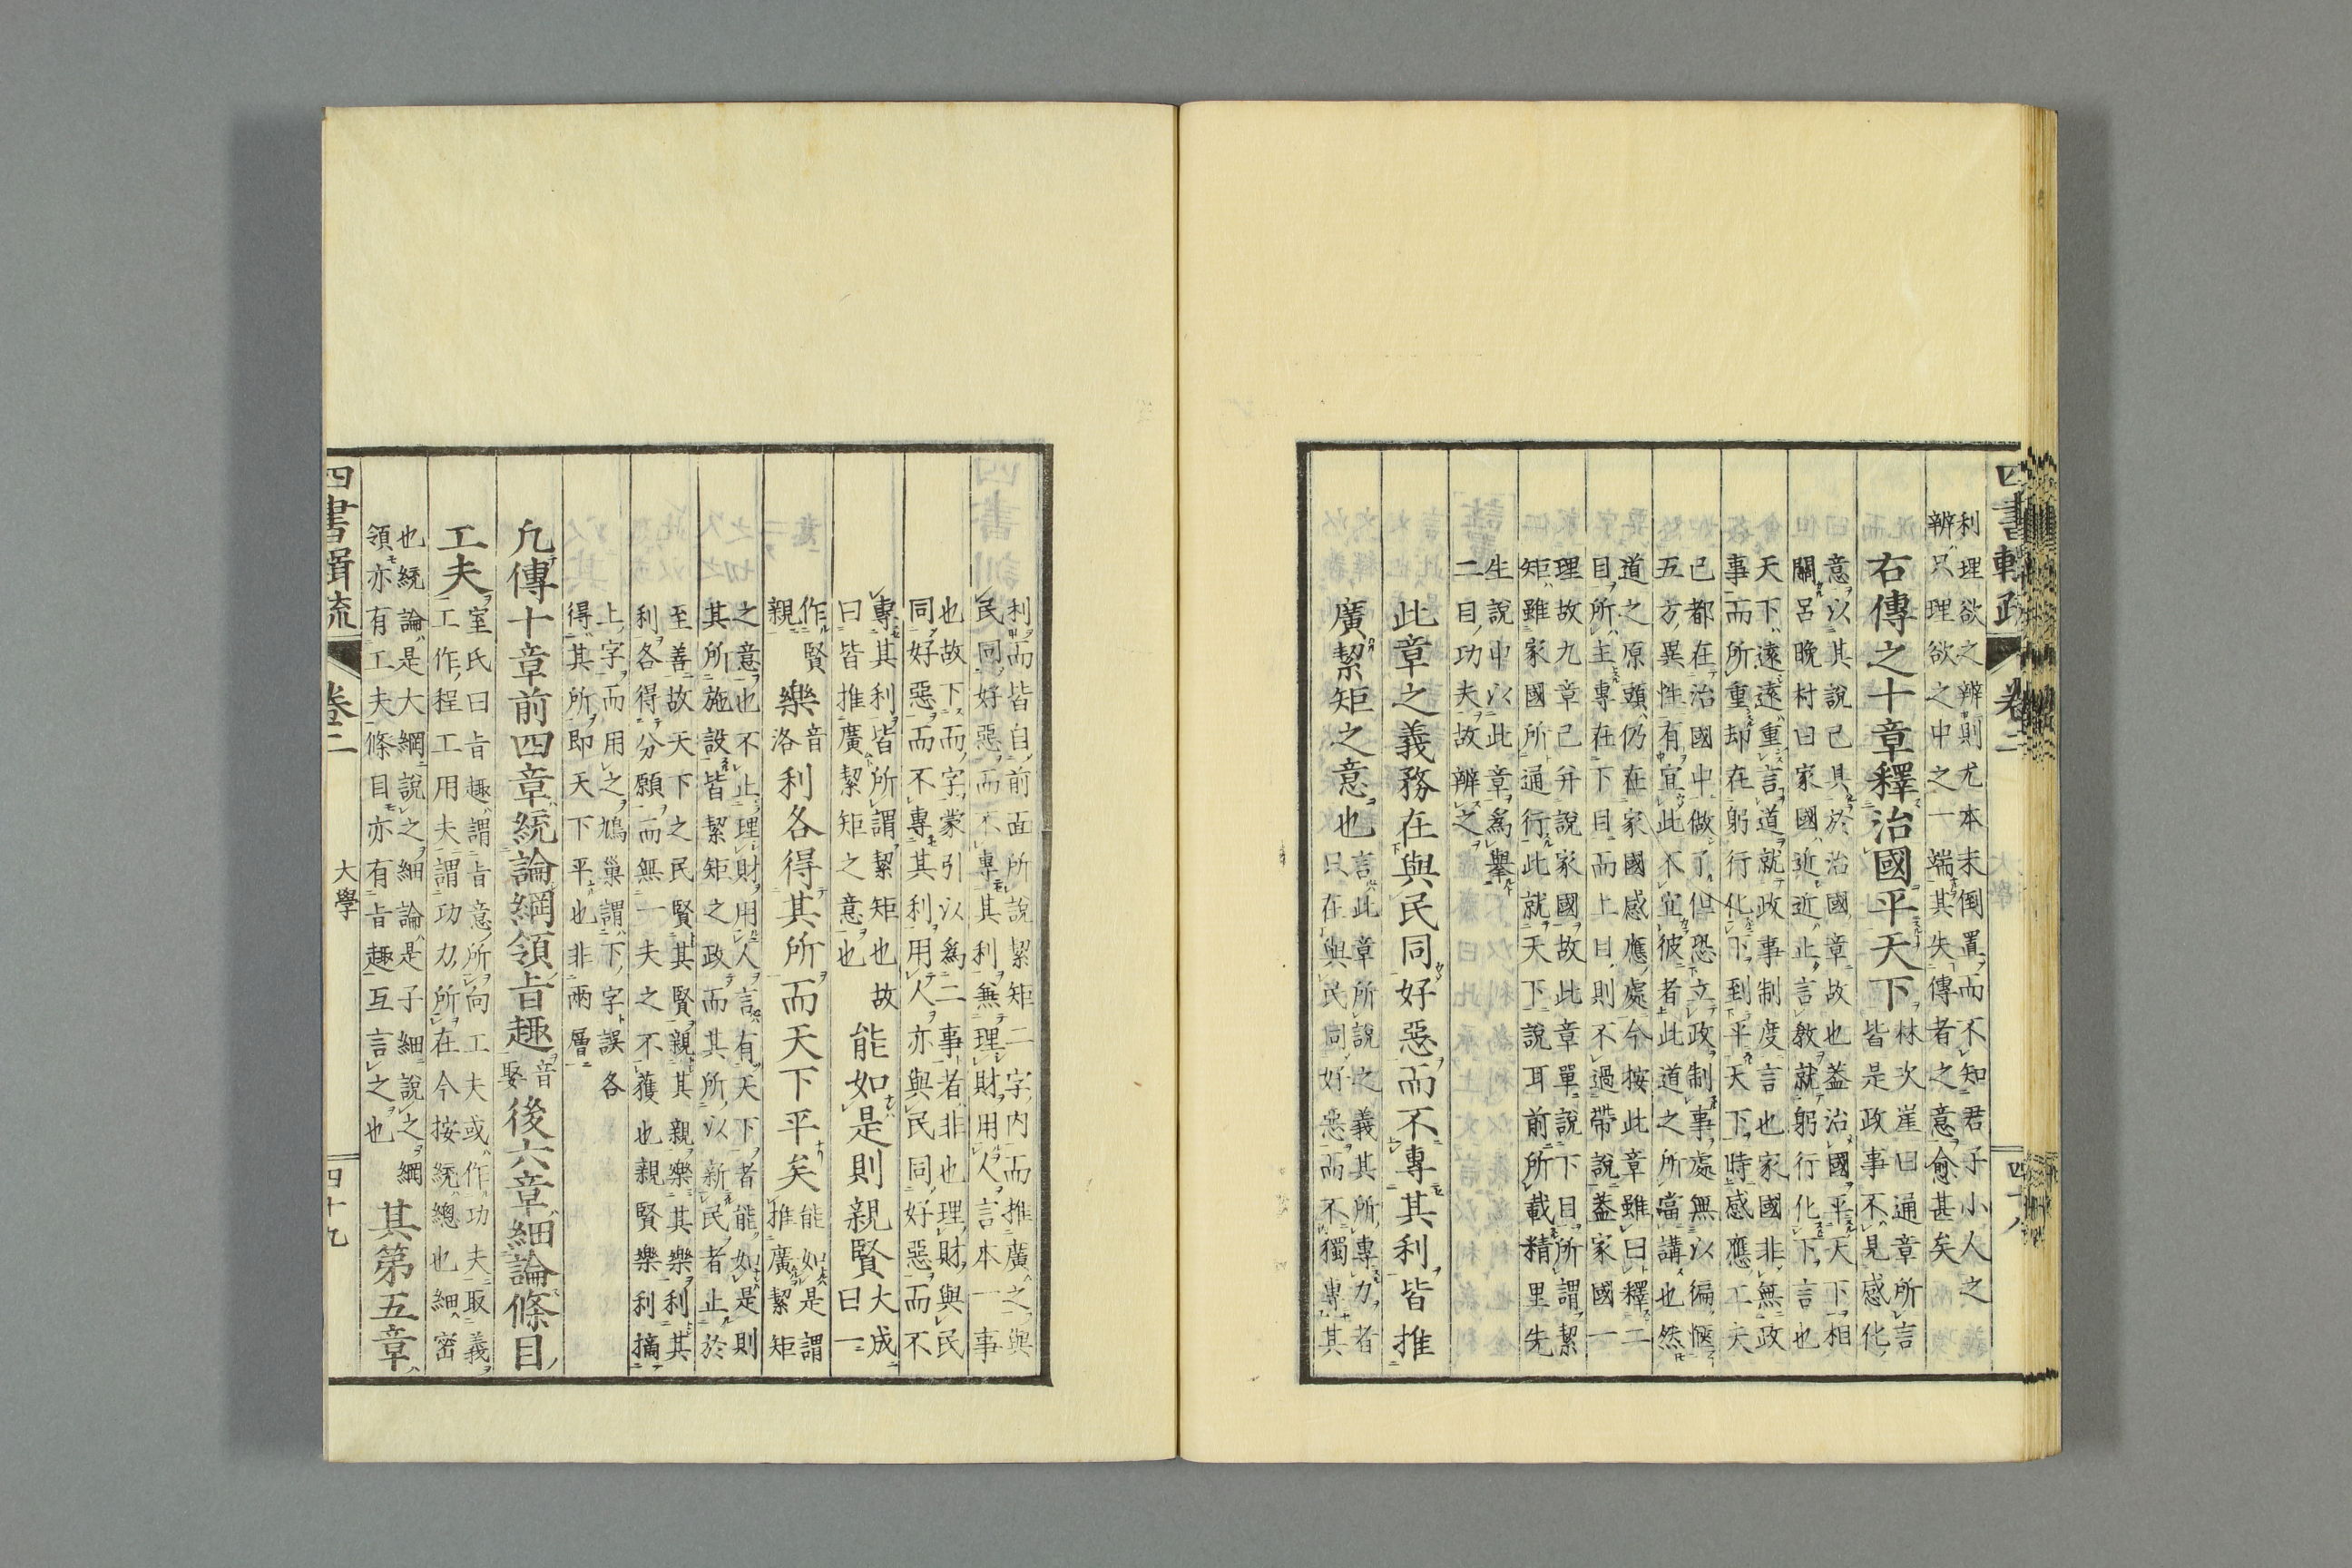 利理欲之辨則尤本末倒置而不知君子小人之
辨只理欲之中之一端其失傳者之意愈甚矣
右傳之十章釋治國平天下
林次崖曰通章所言
皆是政事不見感化
意以其說已具於治國章故也蓋治國平天下相
關呂晚村曰家國近近止言教就躬行化下言也
天下遠遠重言道就政事制度言也家國非無政
事而所重却在躬行化下到平天下時感應工夫
已都在治國中做了但恐立政制事處無以徧愜
五方異性有宜此不宜彼者此道之所當講也然
道之原頭仍在家國感應處今按此章雖曰釋二
目所主專在下目而上目則不過帶說蓋家國一
理故九章已幷說家國故此章單說下目所謂絜
矩雖家國所通行此就天下說耳前所載精里先
生說中以此章爲舉
二目功夫故辨之
此章之義務在與民同好惡而不專其利皆推
廣絜矩之意也
言此章所說之義其所專力者
只在與民同好惡而不獨專其
利而皆自前面所說絜矩二字内而推廣之與
民同好惡而不專其利無理財用人言本一事
也故下而字蒙引以爲二事者非也理財與民
同好惡而不專其利用人亦與民同好惡而不
專其利皆所謂絜矩也故
曰皆推廣絜矩之意也
能如是則親賢
大成
曰一
作賢
親
樂
音
洛
利各得其所而天下平矣
能如是謂
推廣絜矩
之意也不止理財用人言有天下者能如是則
其所施設皆絜矩之政而其所以新民者止於
至善故天下之民賢其賢親其親樂其樂利其
利各得分願而無一夫之不獲也親賢樂利摘
上字而用之鳩巢謂下字誤各
得其所即天下平也非兩層
凡傳十章前四章統論綱領旨趣
音
娶
後六章細論條目
工夫
室氏曰旨趣謂旨意所向工夫或作功夫取義
工作程工用夫謂功力所在今按統總也細密
也統論是大綱說之細論是子細說之綱
領亦有工夫條目亦有旨趣互言之也
其第五章
四書輯疏
卷二
大學
四十九
卷二